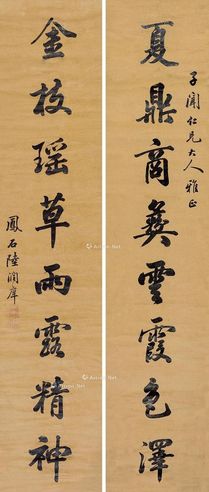 夏鼎商彝雲霞色澤
子闻仁兄大人雅正
金枝瑶草雨露精神
鳳石陸润庠